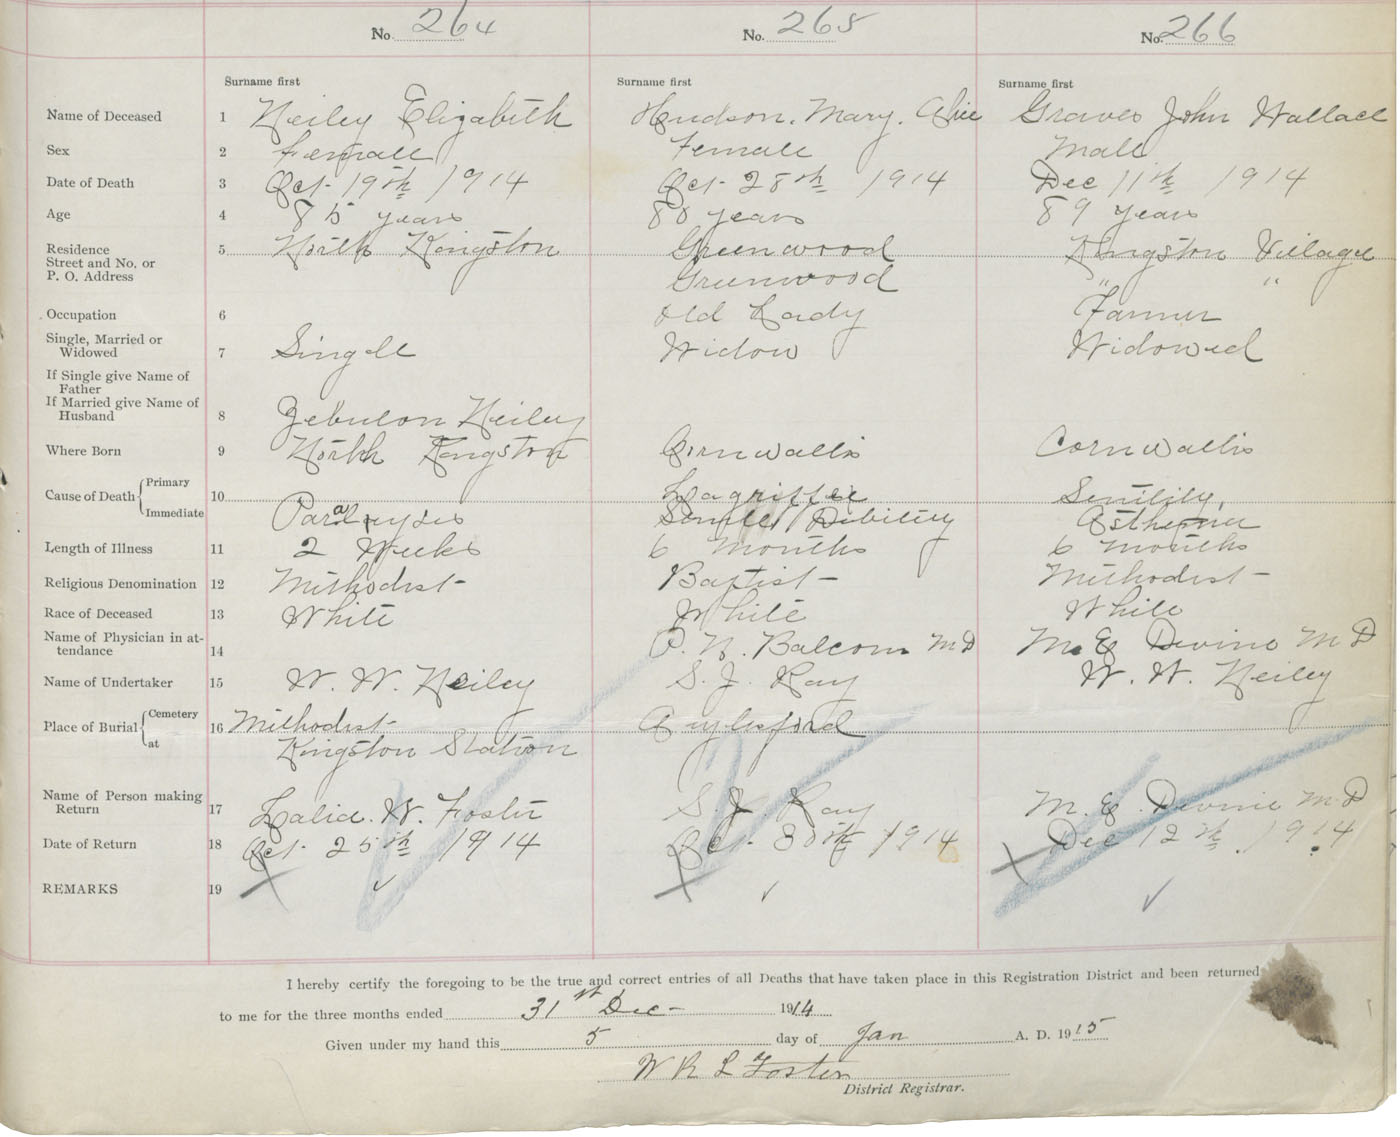 No. 264 No. 265 No. 266
Surname first Surname first Surname first
Name of Deceased 1 Neiley Elizabeth Hudson. Mary. Alice Graves John Wallace
Sex 2 Female Female Male
Date of Death 3 Oct. 19th 1914 Oct. 28th 1914 Dec 11th 1914
Age 4 85 years 80 years 89 years
Residence 5 North Kingston Greenwood Kingston Village
Street and No. or
P. O. Address Greenwood " "
Occupation 6 Old Lady Farmer
Single, Married or
Widowed 7 Single Widow Widowed
If Single give Name of
Father
If Married give Name of
Husband 8 Zebulon Neiley
Where Born 9 North Kingston Cornwallis Cornwallis
Cause of Death Primary 10 Lagrippe Senility,
Immediate Paralaysis Senile Debility Asthenia
Length of Illness 11 2 Weeks 6 months 6 months
Religious Denomination 12 Methodist Baptist Methodist
Race of Deceased 13 White White White
Name of Physician in at-
tendance 14 P. N. Balcom MD M. E Devine MD
Name of Undertaker 15 W. W. Neiley S. J. Ray W. W. Neiley
Place of Burial Cemetery 16 Methodist Aylesford
at Kingston Station
Name of Person making
Return 17 Lalia. W. Foster S. J. Ray M. E. Devine MD
Date of Return 18 Oct. 25th 1914 Oct. 30th 1914 Dec 12th 1914
REMARKS 19
I hereby certify the foregoing to be the true and correct entries of all Deaths that have taken place in this Registration District and been returned
to me for the three months ended 31st Dec 1914
Given under my hand this 5 day of Jan A. D. 1915
W R L Foster
District Registrar.